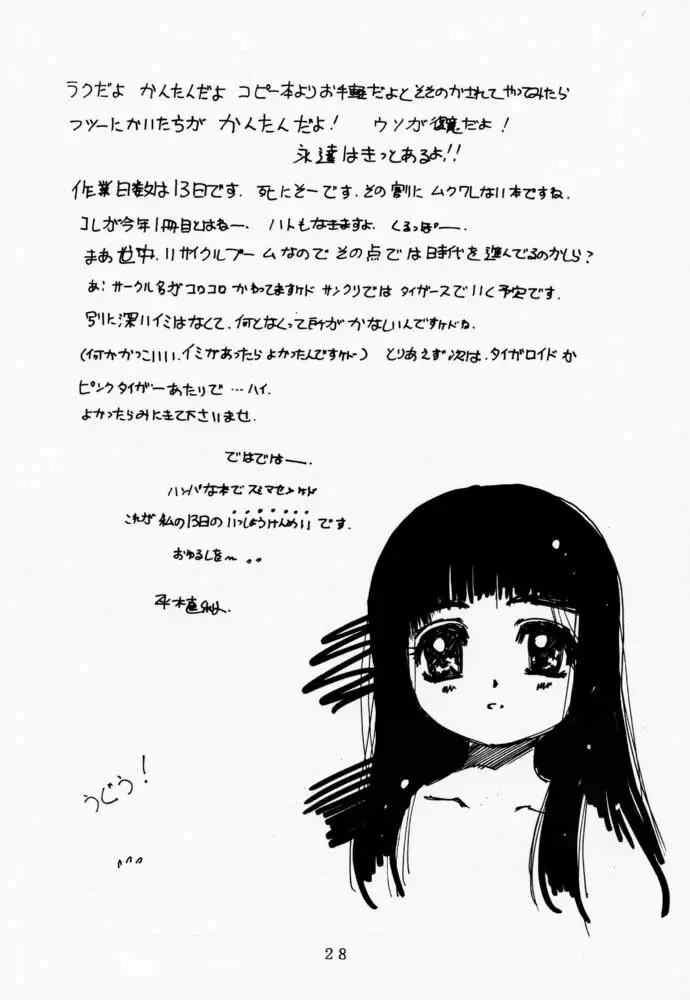 ラクだよ かんたんだよ コピー本よりお手軽だよとそそのかされてやってみたら
フツーにかいたちが かんたんだよ! ウソが だよ!
永遠はきっとあるよ!!
作業日数は13日です. 死にそーです. その割に ムクワレない本ですね.
コレが今年1冊目とはねー. ハトもなきますよ. くるっぽー.
まあ世中.リサイクルブームなので その点では時代を進んでるのかしら?
あ! サークル名がコロコロ かわってますケド サンクリでは タイガースでいく予定です.
別に深いイミはなくて. 何となくって所が かなしいんですけどね.
(何かかっこいい.イミがあったら よかったんですケド) とりあえず次は.タイガロイド か
ピンクタイガーあたりで …ハイ.
よかったらみにきて下さいませ.
ではではー.
ハンパな本でスミマセンケド
これが 私の13日の いっしょうけんめい です.
おゆるしを〜 ..
うぐぅ!
28